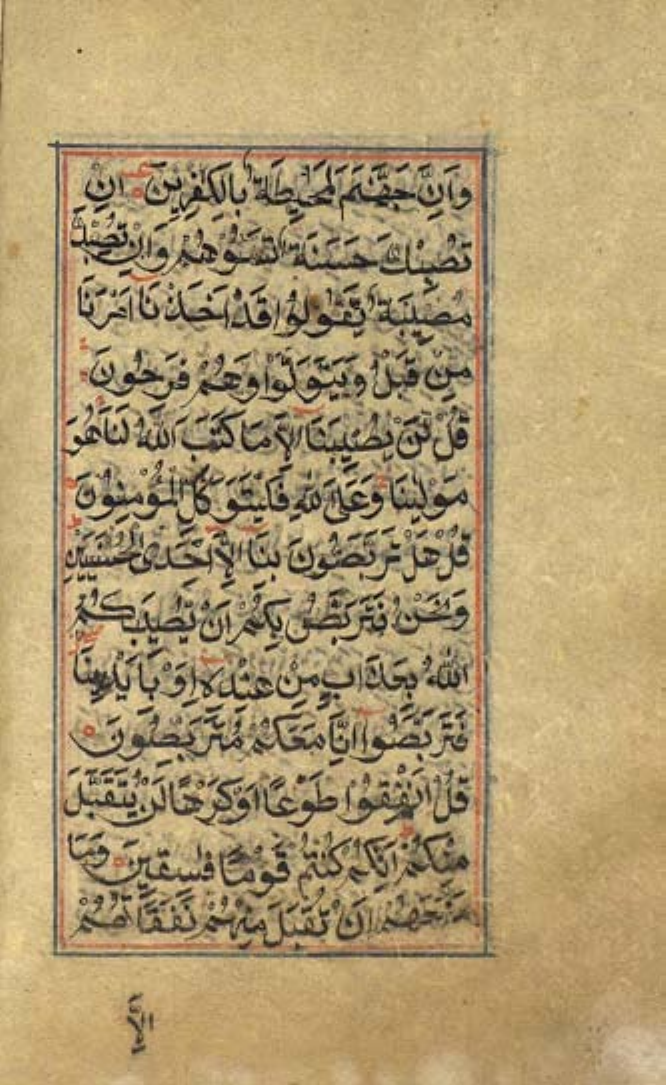 وَاِنَّ جَهَنَّمَ لَمُحِيطَةٌ بِالْكٰفِرِينَ اِنْ
تُصِبْكَ حَسَنَةٌ تَسُؤْهُمْ وَاِنْ تُصِبْكَ
مُصِيبَةٌ يَقُولُوا قَدْ اَخَذْنَا اَمْرَنَا
مِنْ قَبْلُ وَيَتَوَلَّوْا وَهُمْ فَرِحُونَ
قُلْ لَنْ يُصِيبَنَا اِلَّا مَا كَتَبَ اللّٰهُ لَنَا هُوَ
مَوْلٰينَا وَعَلَى اللّٰهِ فَلْيَتَوَكَّلِ الْمُؤْمِنُونَ
قُلْ هَلْ تَرَبَّصُونَ بِنَا اِلَّا اِحْدَى الْحُسْنَيَيْنِ
وَنَحْنُ نَتَرَبَّصُ بِكُمْ اَنْ يُصِيبَكُمُ
اللّٰهُ بِعَذَابٍ مِنْ عِنْدِهٖ اَوْ بِاَيْدِينَا
فَتَرَبَّصُوا اِنَّا مَعَكُمْ مُتَرَبِّصُونَ
قُلْ اَنْفِقُوا طَوْعًا اَوْ كَرْهًا لَنْ يُتَقَبَّلَ
مِنْكُمْ اِنَّكُمْ كُنْتُمْ قَوْمًا فٰسِقِينَ وَمَا
مَنَعَهُمْ اَنْ تُقْبَلَ مِنْهُمْ نَفَقَاتُهُمْ
اِلَّا